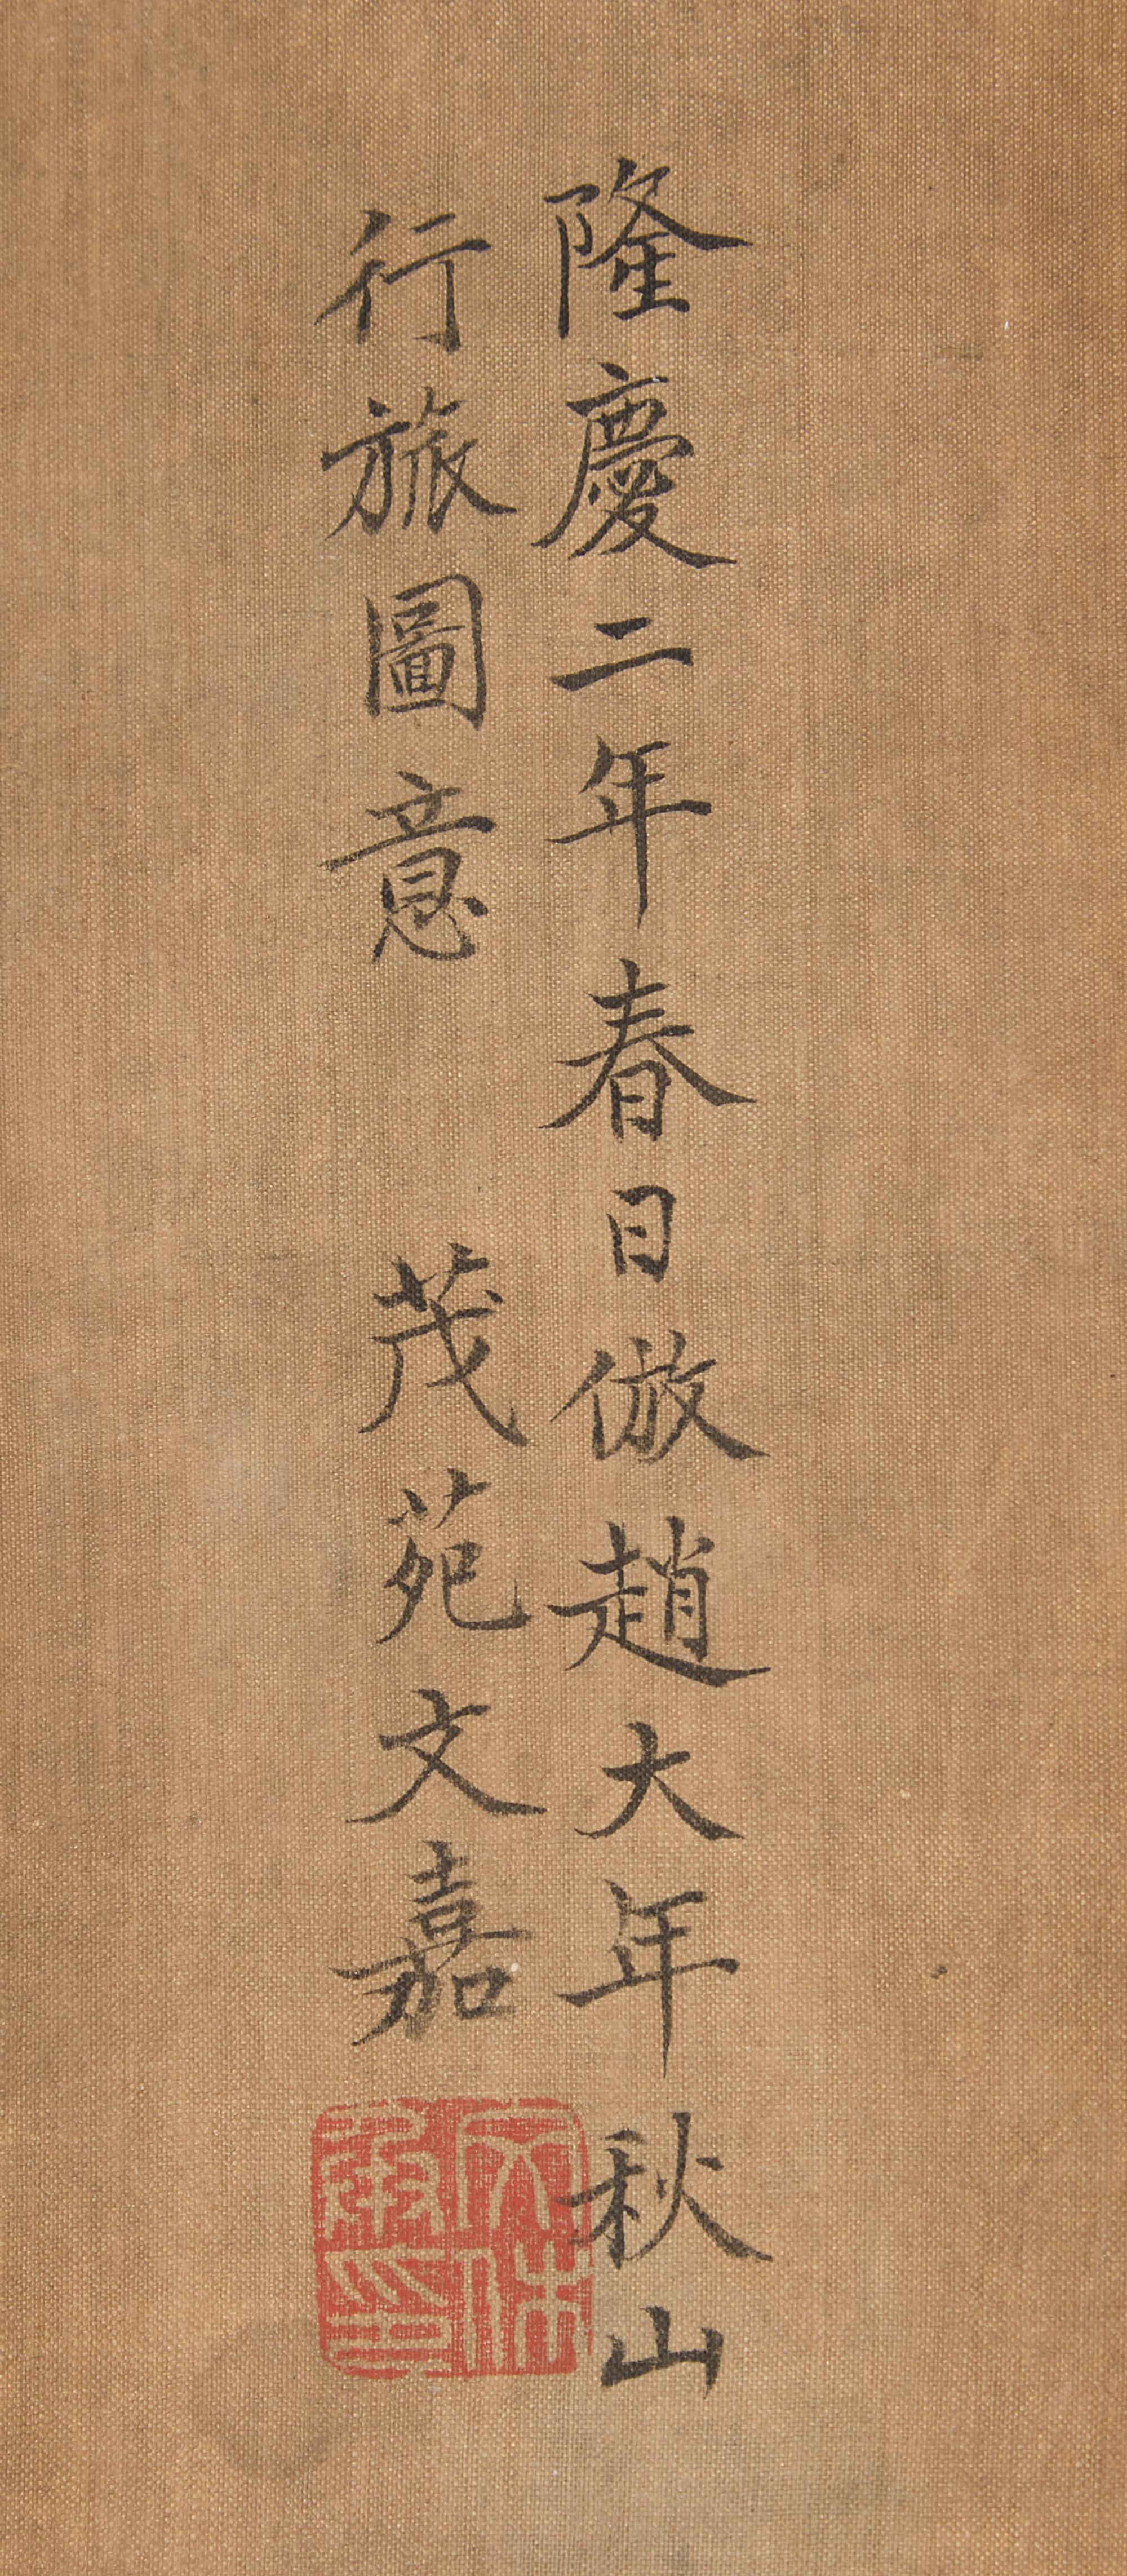 隆慶二年春日倣趙大年秋山
行旅圖意 茂苑文嘉
文休承印